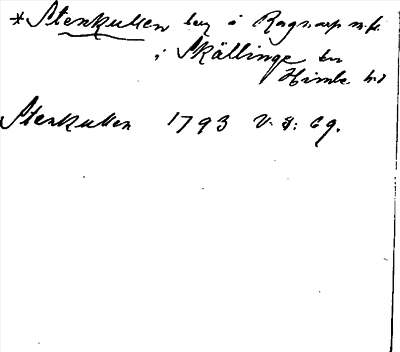 *Stenkullen beg å Ragnarp m.fl.
i Skällinge sn
Himle hd
Stenkullen 1793 V. 8: 69.